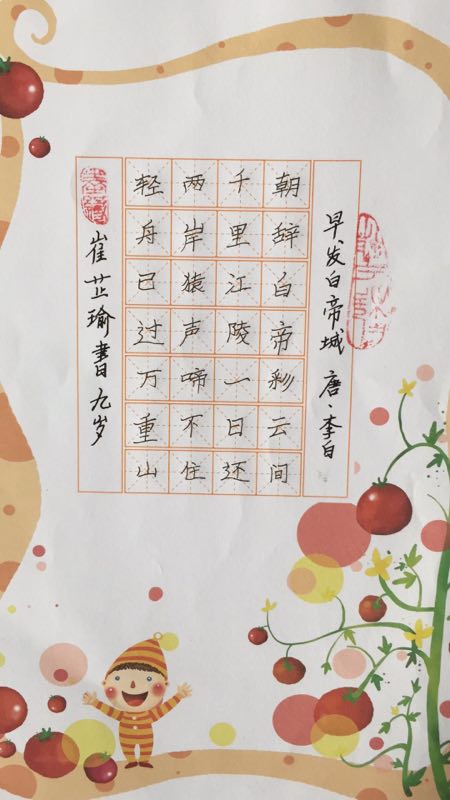 早发白帝城 唐·李白
朝辞白帝彩云间
千里江陵一日还
两岸猿声啼不住
轻舟已过万重山
崔芷瑜書 九岁